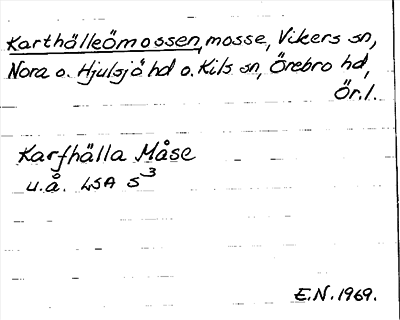 Karthälleömossen, mosse, Vikers sn,
Nora o. Hjulsjö hd o. Kils sn, Örebro hd,
Ör.l.
Karfhälla Måse
u.å. LSA S3
E.N. 1969.